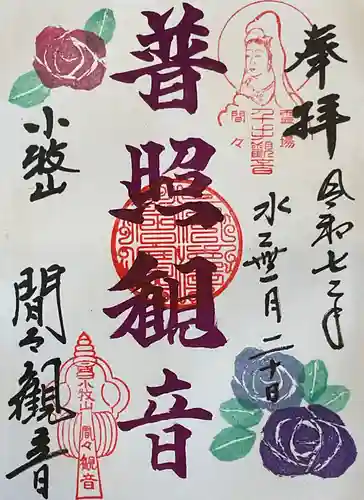 奉拝
令和七年
水無月二十日
霊場
千手観音
間々
普照観音
小牧山
間々観音
小牧山
間々
観音